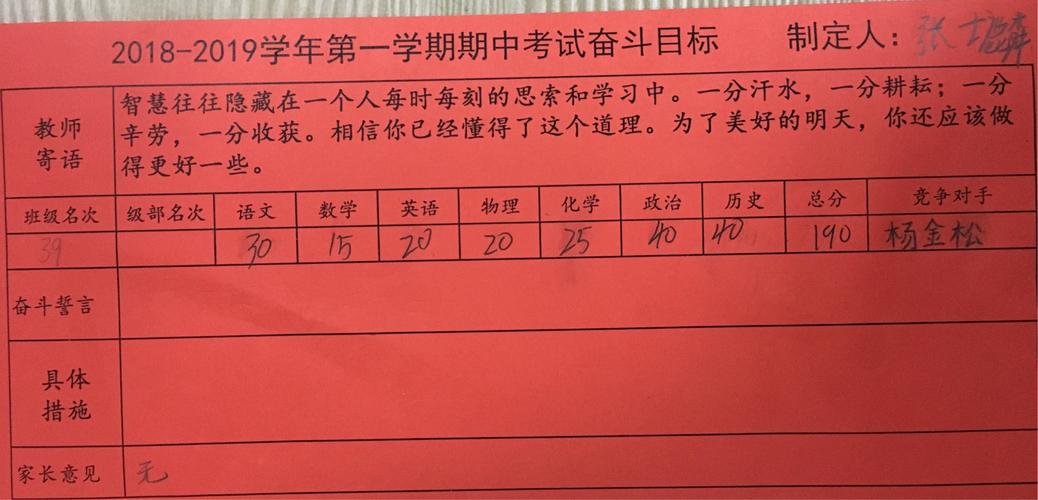 2018-2019学年第一学期期中考试奋斗目标 制定人：张
教师寄语
智慧往往隐藏在一个人每时每刻的思索和学习中。一分汗水，一分耕耘；一分
辛劳，一分收获。相信你已经懂得了这个道理。为了美好的明天，你还应该做
得更好一些。
班级名次 级部名次 语文 数学 英语 物理 化学 政治 历史 总分 竞争对手
39 30 15 20 20 25 40 40 190 杨金松
奋斗誓言
具体
措施
家长意见 无